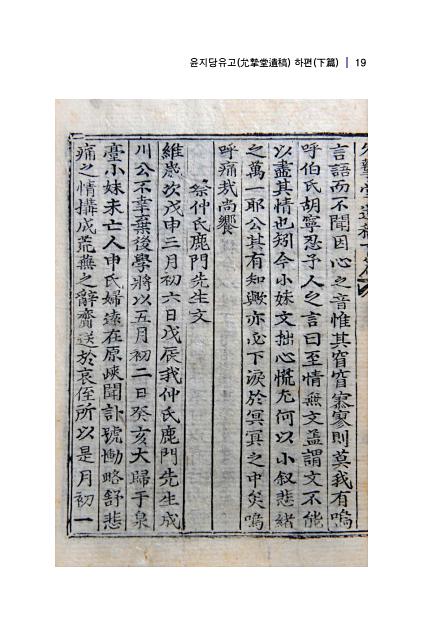 윤지당유고(允摯堂遺稿) 하편(下篇) | 19
言語而不聞因心之音惟其窅窅寥寥則莫我有嗚
呼伯氏胡寧忍予人之言曰至情無文蓋謂文不能
以盡其情也矧今小妹文拙心慌尤何以小叙悲緒
之萬一耶公其有知歟亦必下淚於冥冥之中矣嗚
呼痛哉尚饗
祭仲氏鹿門先生文
維歲次戊申三月初六日戊辰我仲氏鹿門先生成
川公不幸棄後學將以五月初二日癸亥大歸于泉
臺小妹未亡人申氏婦遠在原峽聞訃號慟略舒悲
痛之情搆成荒蕪之辭齎送於哀侄所以是月初一